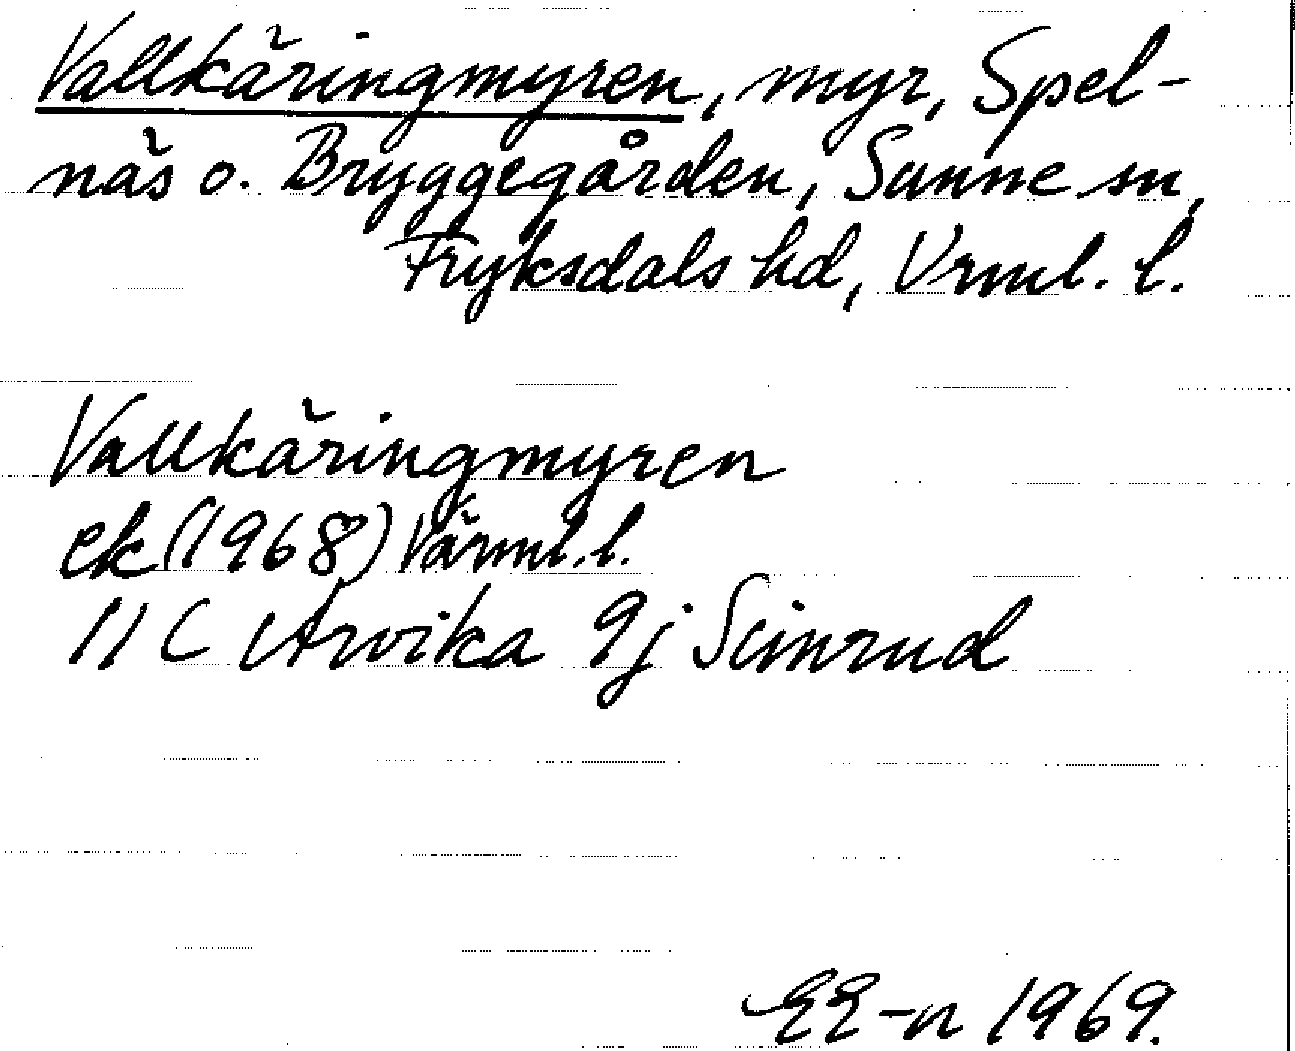 Vallkäringmyren, myr, Spel-
näs o. Bryggegården, Sunne sn,
Fryksdals hd, Vrml. l.
Vallkäringmyren
ek (1968) Värml. l.
11 C Arvika 9j Simrud
EE-n 1969.